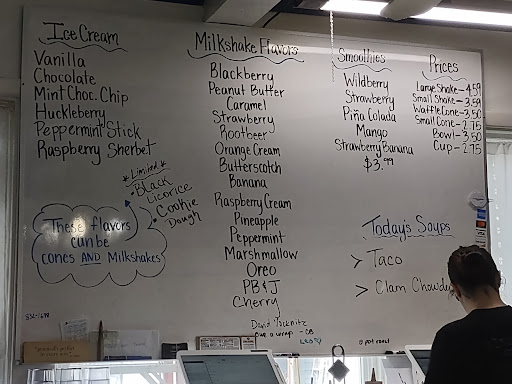 Ice Cream
Vanilla
Chocolate
Mint Choc. Chip
Huckleberry
Peppermint Stick
Raspberry Sherbet
*Limited*
• Black Licorice
• Cookie Dough
These flavors
can be
cones AND Milkshakes
Milkshake Flavors
Blackberry
Peanut Butter
Caramel
Strawberry
Rootbeer
Orange Cream
Butterscotch
Banana
Raspberry Cream
Pineapple
Peppermint
Marshmallow
Oreo
PB & J
Cherry
Smoothies
Wildberry
Strawberry
Piña Colada
Mango
Strawberry Banana
$3.99
Prices
Large Shake - 4.59
Small Shake - 3.59
Waffle Cone - 3.50
Small Cone - 2.75
Bowl - 3.50
Cup - 2.75
Today's Soups
> Taco
> Clam Chowder
David
a wrap
pot roast